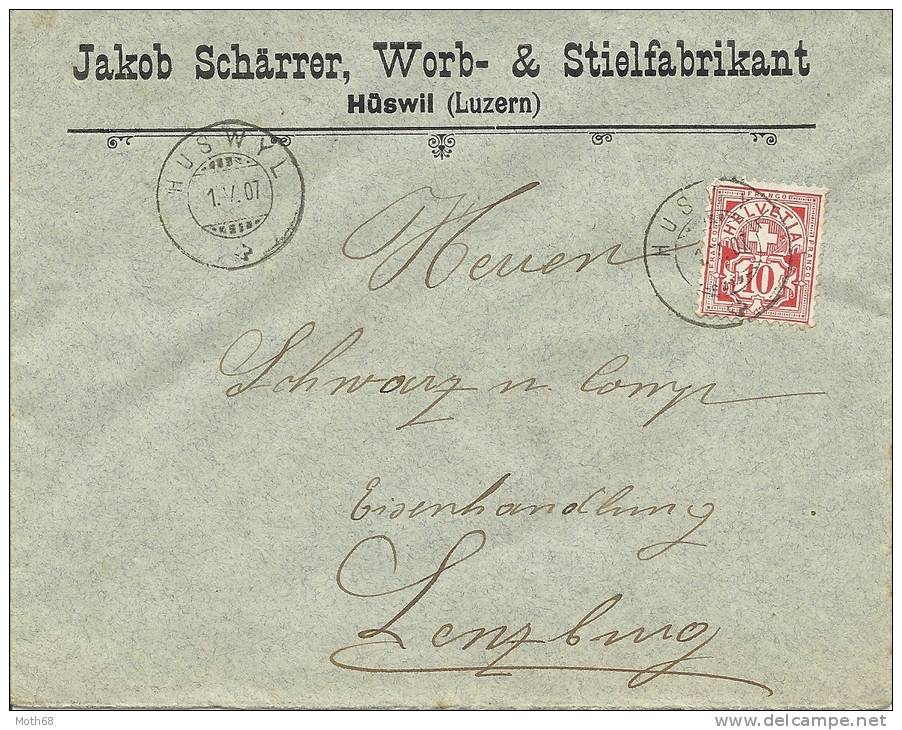 Jakob Schärrer, Worb- & Stielfabrikant
Hüswil (Luzern)
HUSWYL
1.V.07
HUSWYL
FRANCO
HELVETIA
10
Herren
Schwarz u. Comp
Eisenhandlung
Lenzburg
Moth68
www.delcampe.net